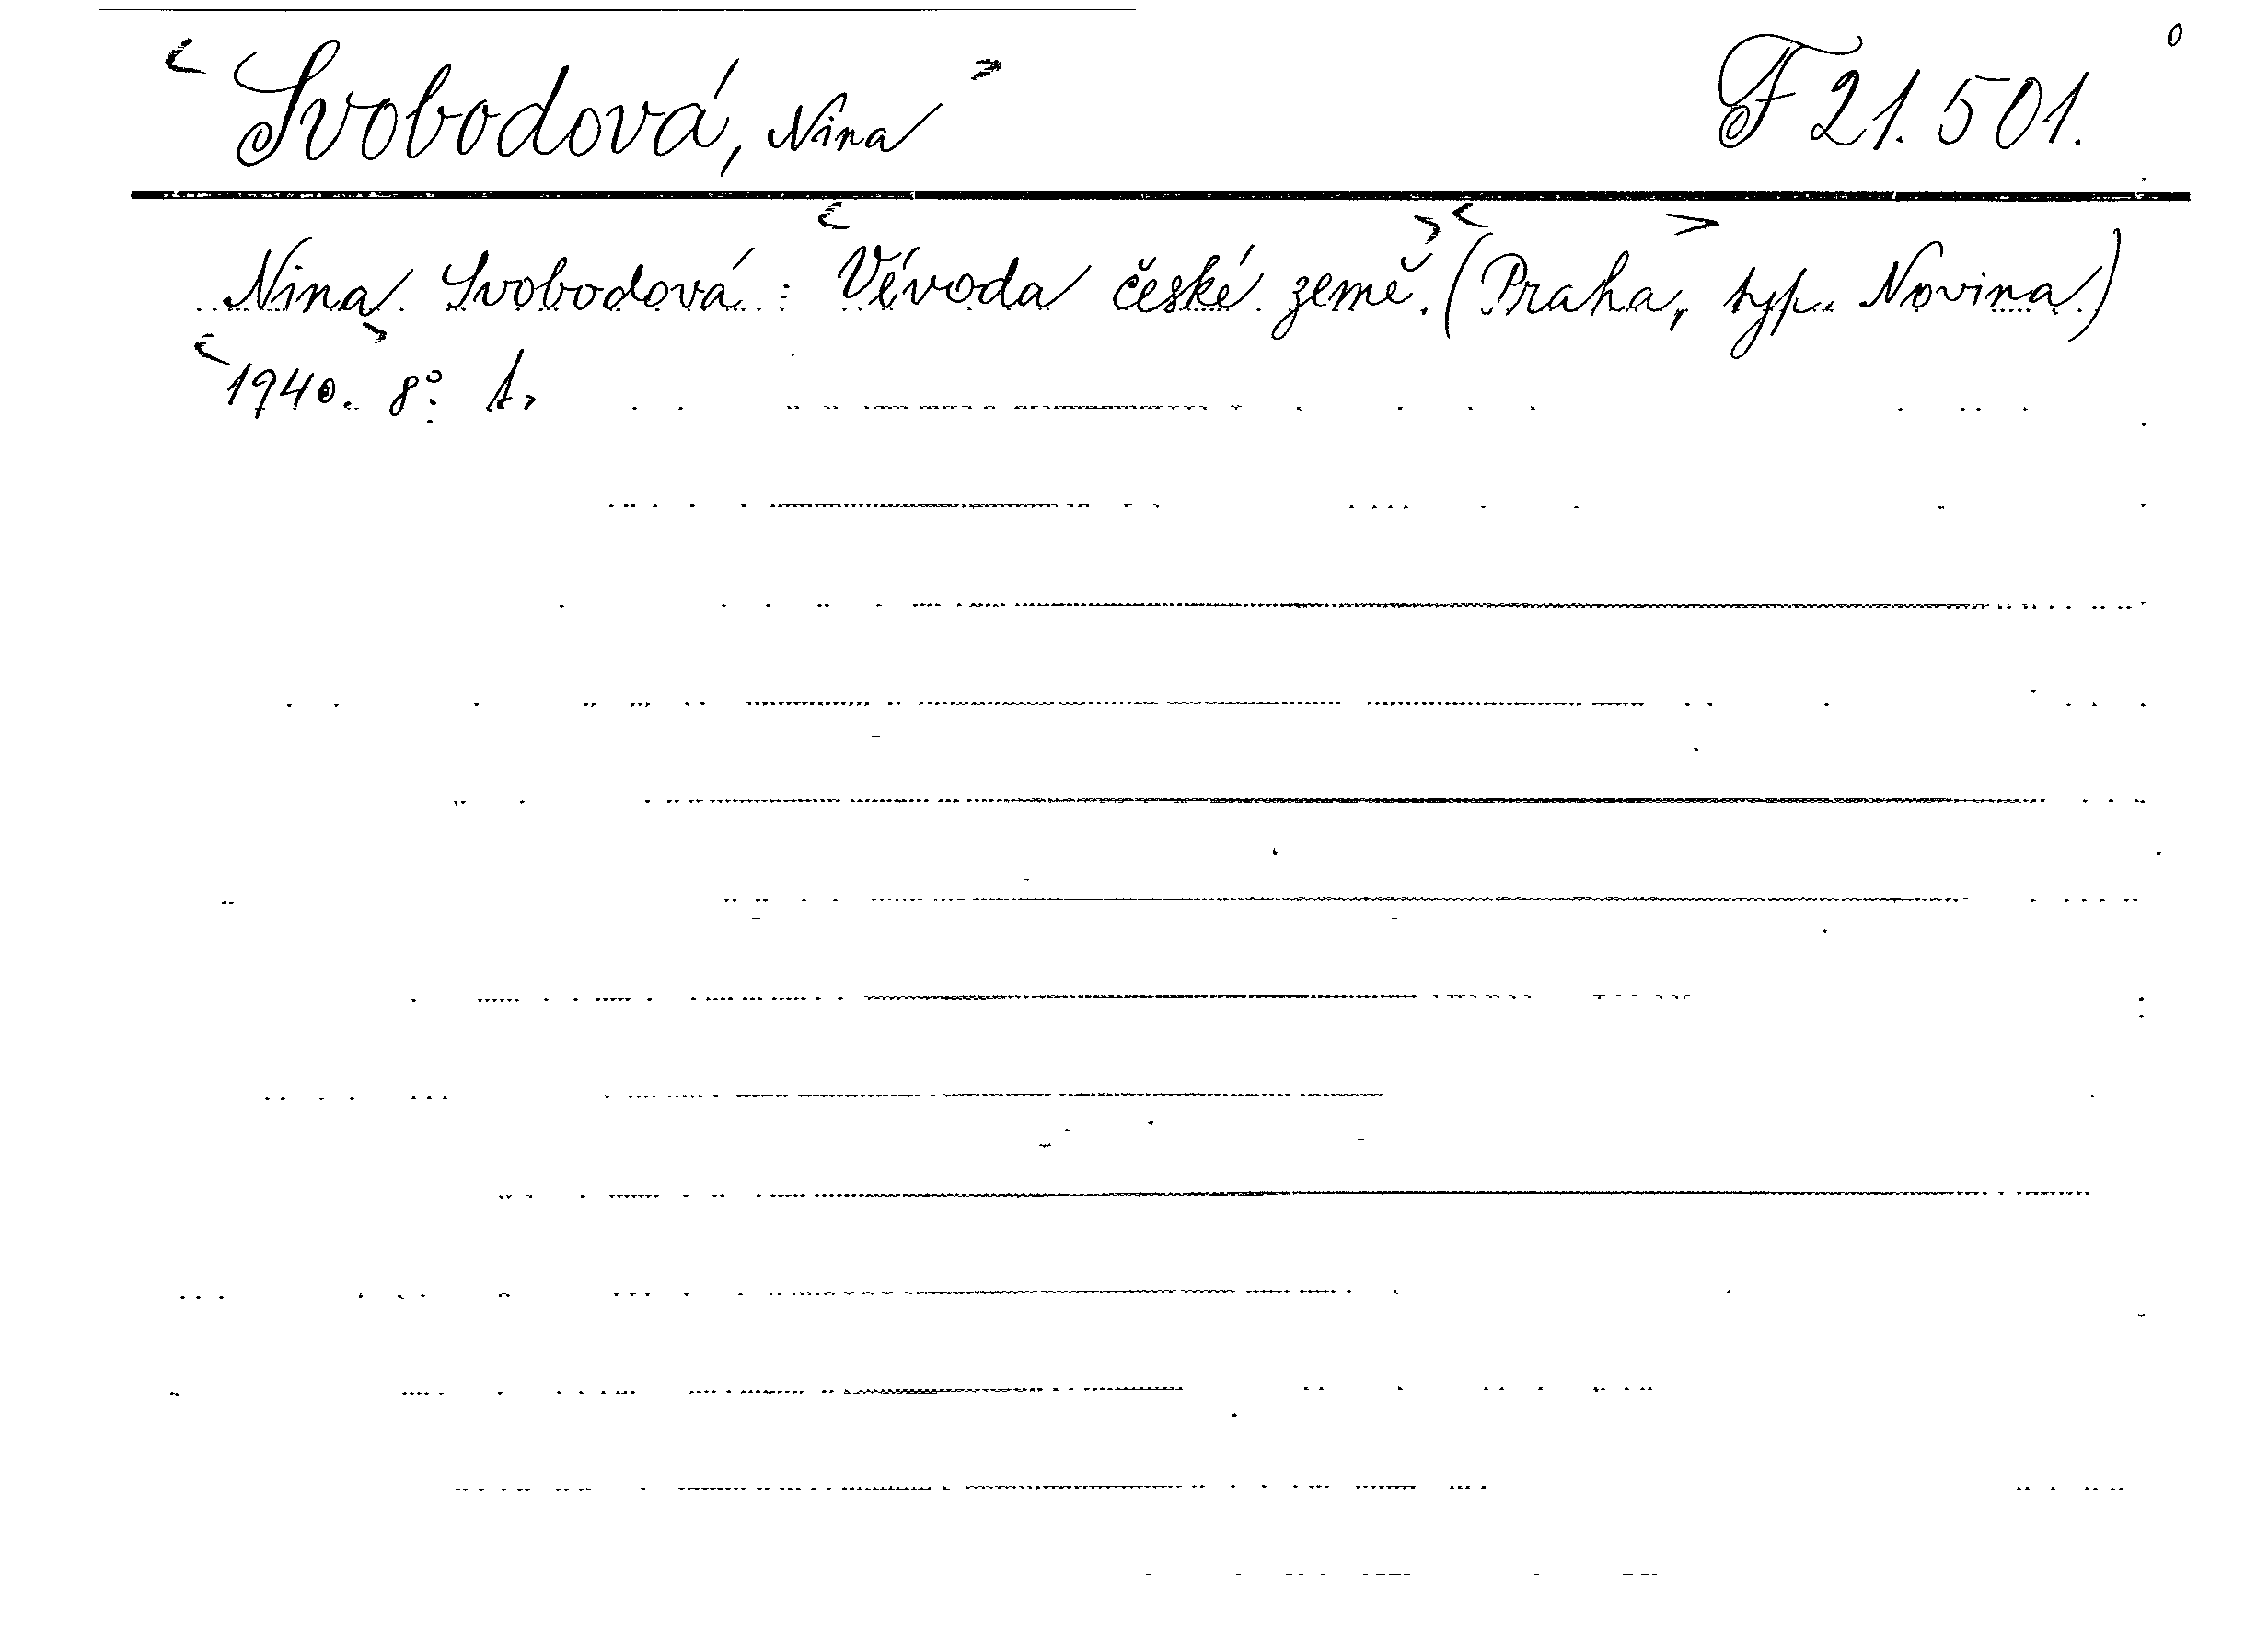 <Svobodová, Nina> F 21.501.
Nina Svobodová: <Vévoda české země.> (<Praha,> typ. Novina)
<1940.> 8°.